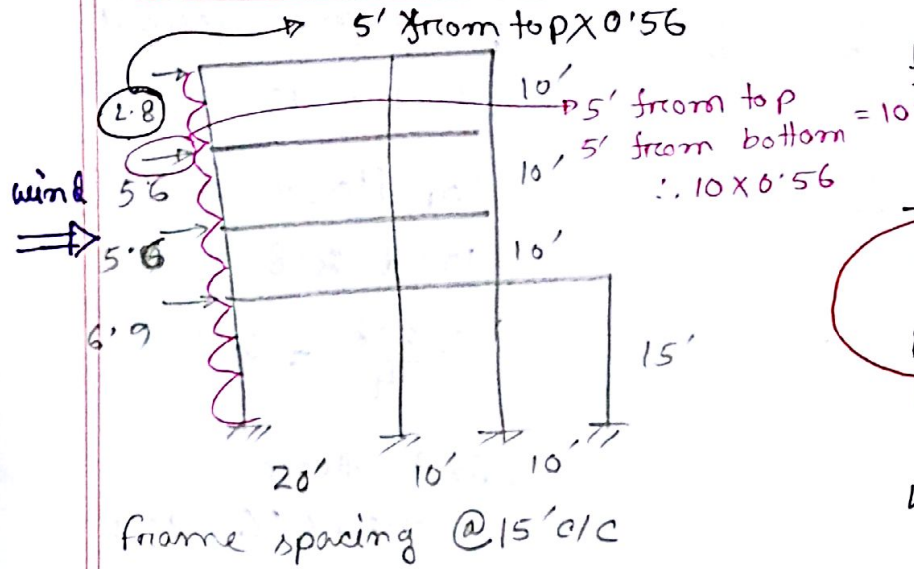 5' from top X 0.56
2.8
10'
5' from top
5' from bottom = 10
∴ 10 X 0.56
10'
wind
5.6
5.6
10'
6.9
15'
20'
10'
10'
frame spacing @ 15' c/c